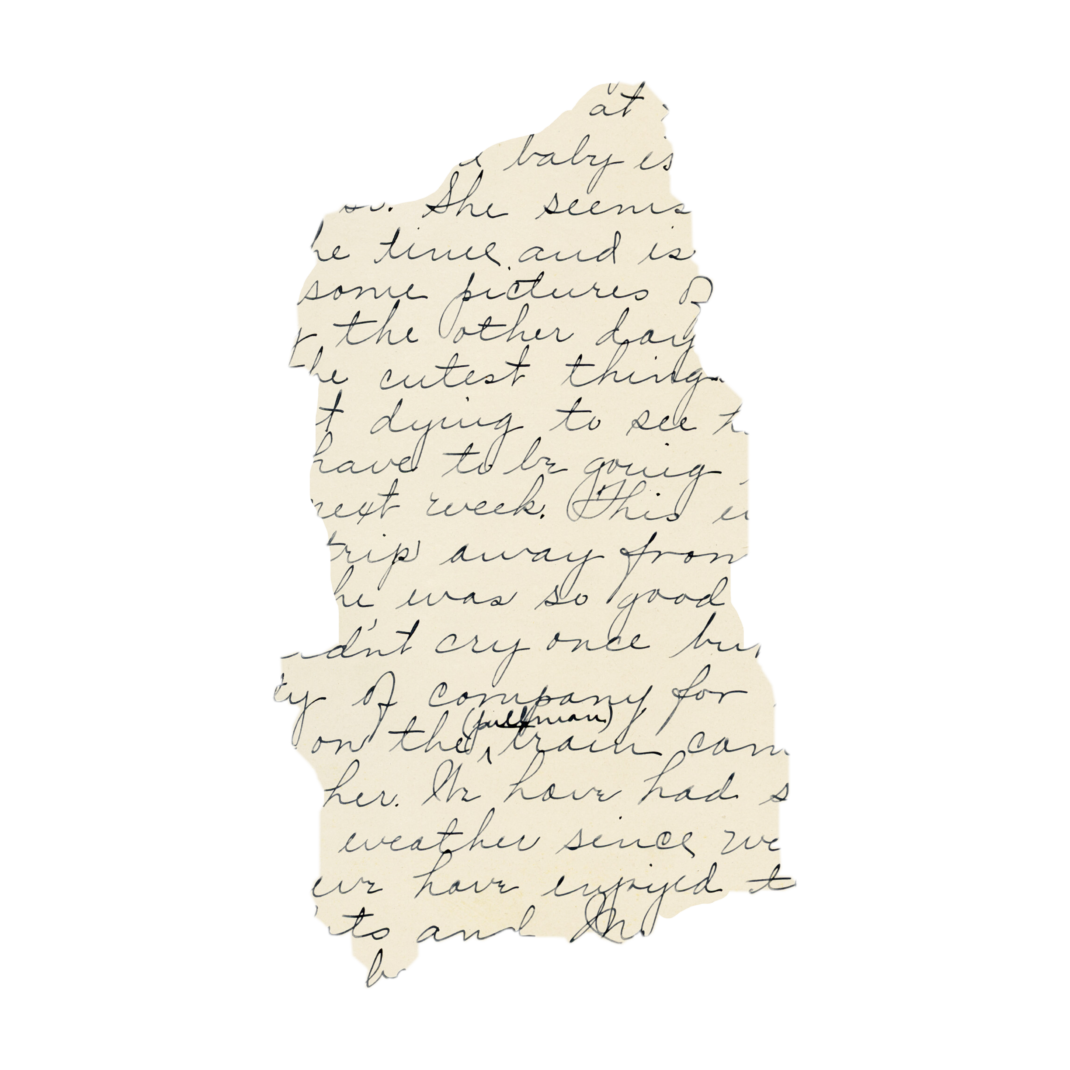 at
baby is
so. She seems
he time and is
some pictures of
the other day
he cutest thing
t dying to see h
have to be going
next week. This
trip away from
he was so good
dn't cry once bu
ty of company for
(pullman)
on the train cam
her. We have had s
weather since we
we have enjoyed t
ts and Th
b